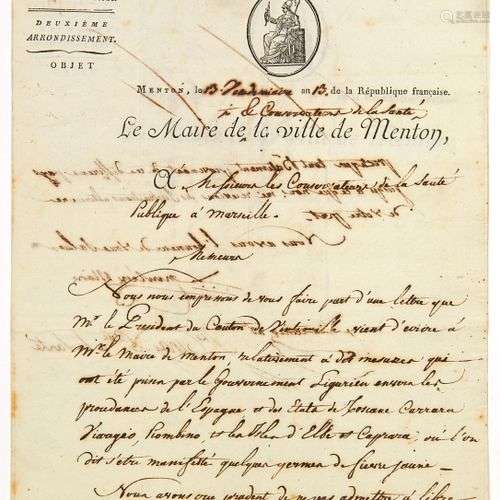 DEUXIÈME
ARRONDISSEMENT.
OBJET
MENTON, le 13 Vendemiaire an 13. de la République française.
& les Conservateurs de la Santé
Le Maire de la ville de Menton,
A Messieurs les Conservateurs de la Santé
Publique à Marseille.
Messieurs
Nous nous empressons de vous faire part d'une lettre que
Mr. le President du Canton de Vintimille vient d'ecrire à
Mr. le Maire de Menton relativement à des mesures qui
ont été prises par le Gouvernement Ligurien envers les
provenances de l'Espagne et des Etats de Toscane Carrara
Viareggio, Piombino, et les Isles d'Elbe et Capraya, où l'on
dit s'etre manifesté quelque germen de fievre jaune -
Nous avons cru prudent de ne pas admettre à libre